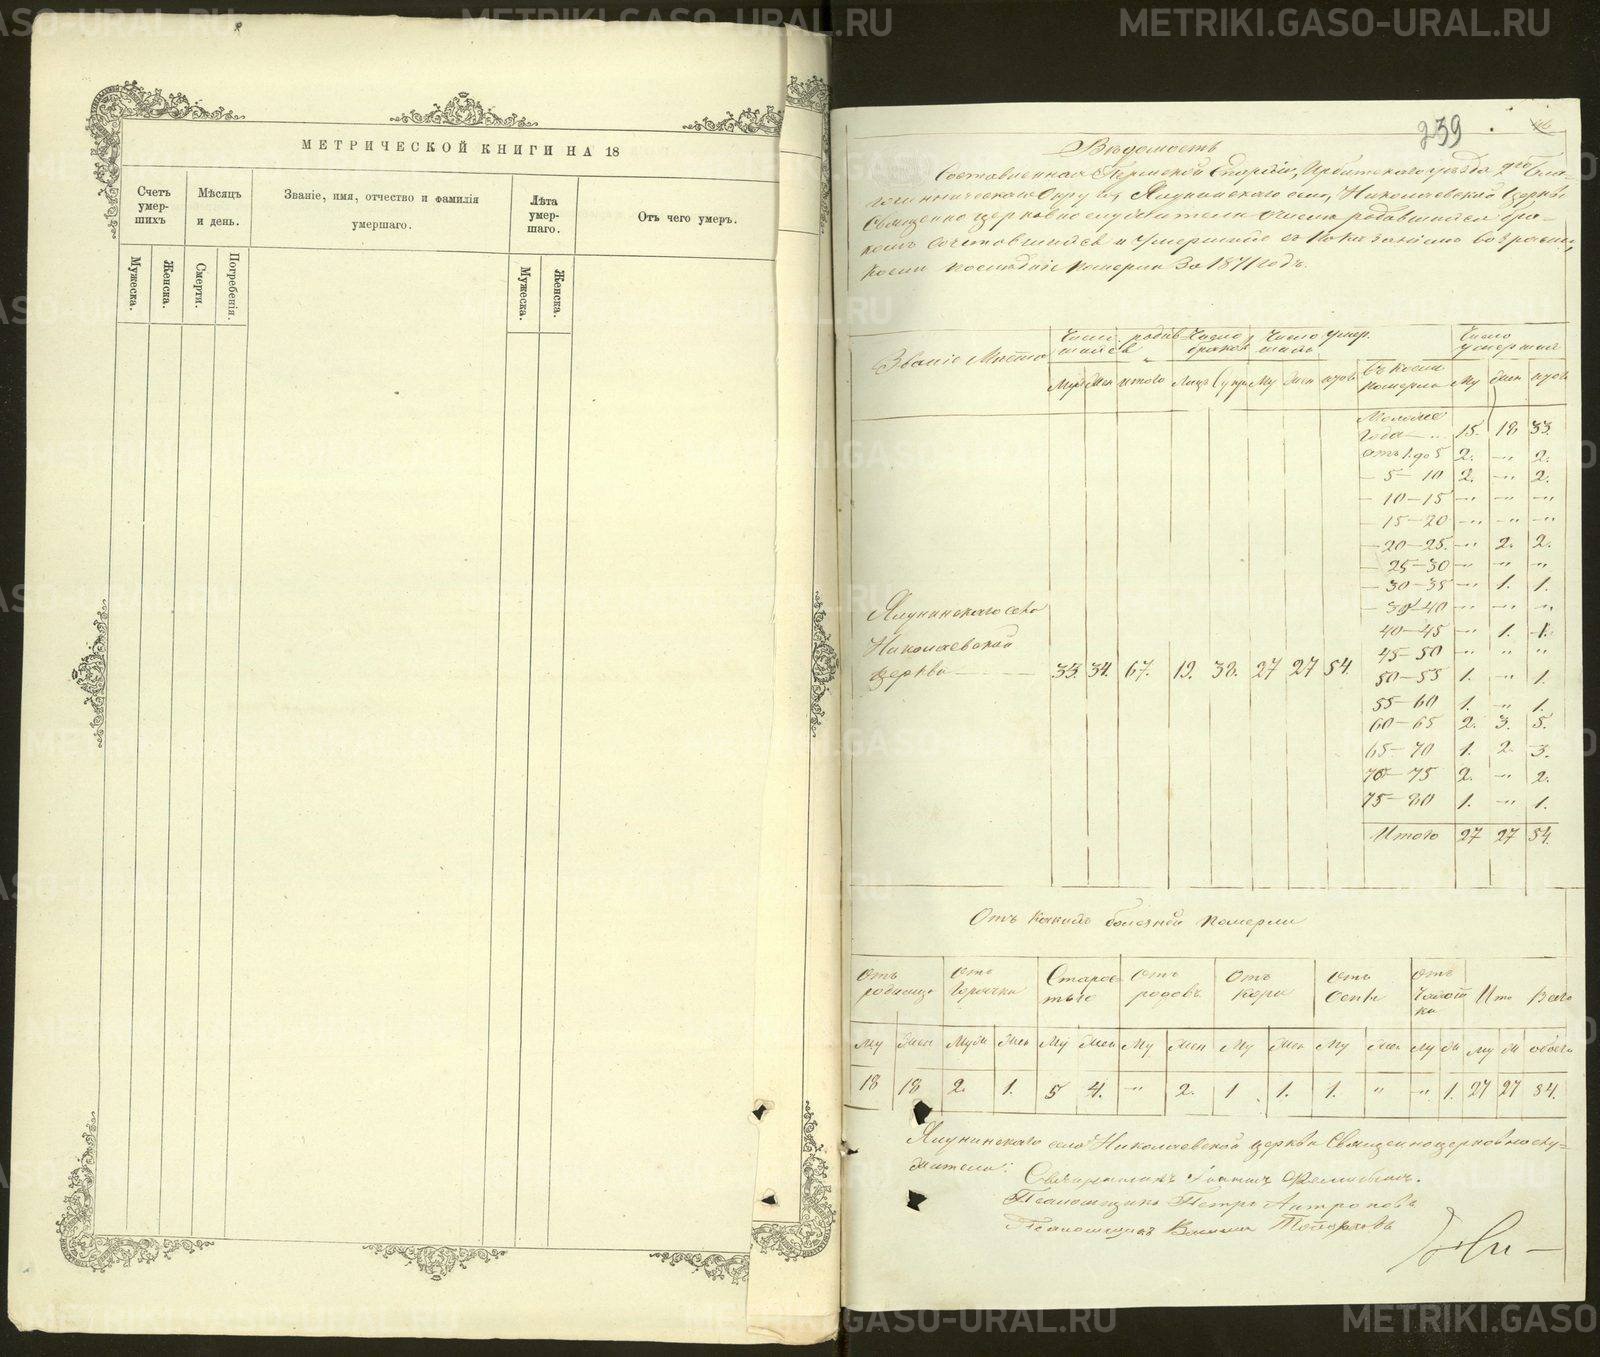 МЕТРИЧЕСКОЙ КНИГИ НА 18
Счетъ умер-шихъ
Мѣсяцъ и день.
Званіе, имя, отчество и фамилія умершаго.
Лѣта умер-шаго.
Отъ чего умеръ.
Мужеска.
Женска.
Смерти.
Погребенія.
Мужеска.
Женска.
239
Вѣдомость
Составленная Пермской Епархіи, Ирбитскаго уѣзда 2го Бла-
гочинническаго Округа, Ялунинскаго села, Николаевской Церкви
Священно церковнослужителями о числѣ родившихся бра-
комъ сочетовшихся и умершихъ съ показаніемъ возраста,
коємъ послѣдніе померли За 1871 годъ.
Званіе Мѣста
Число родив шихся
Число браковъ
Число умер шихъ
Число умершихъ
Муж Жен итого Лицъ Му Жен
померли Му Жен
Моложе года 15. 18 33.
отъ 1. до 5 2. " 2.
5 — 10 2. " 2.
— 10 — 15 " " "
— 15 — 20 " " "
— 20 — 25. " 2. 2.
— 25 — 30 " " "
— 30 — 35 " 1. 1.
— 30 — 40 " " "
40 — 45 " 1. 1.
45 — 50 " " "
50 — 55 1. " 1.
55 — 60 1. " 1.
60 — 65 2. 3. 5.
65 — 70 1. 2. 3.
70 — 75 2. " 2.
75 — 80 1. " 1.
Итого 27 27 54.
Ялунинскаго села
Николаевской
церкви 33. 34. 67. 19. 38. 27 27 54.
Отъ какихъ болезней померли
Отъ родимца
Отъ Горячки
Старос тью
Отъ родовъ
Отъ кори
Отъ оспы
Отъ Чахотки
Ито
Всего
Му Жен Муж Жен Му Жен Му Жен Му Жен Му Жен Му Ж Му Ж обоего
18 18 2. 1. 5 4. " 2. 1 1. 1. " " 1. 27 27 54.
Ялунинскаго села Николаевской церкви Священноцерковнослу-
жители:
Священникъ Іоаннъ
Псаломщикъ Петръ Антроповъ
Псаломщикъ Топорковъ
METRIKI.GASO-URAL.RU